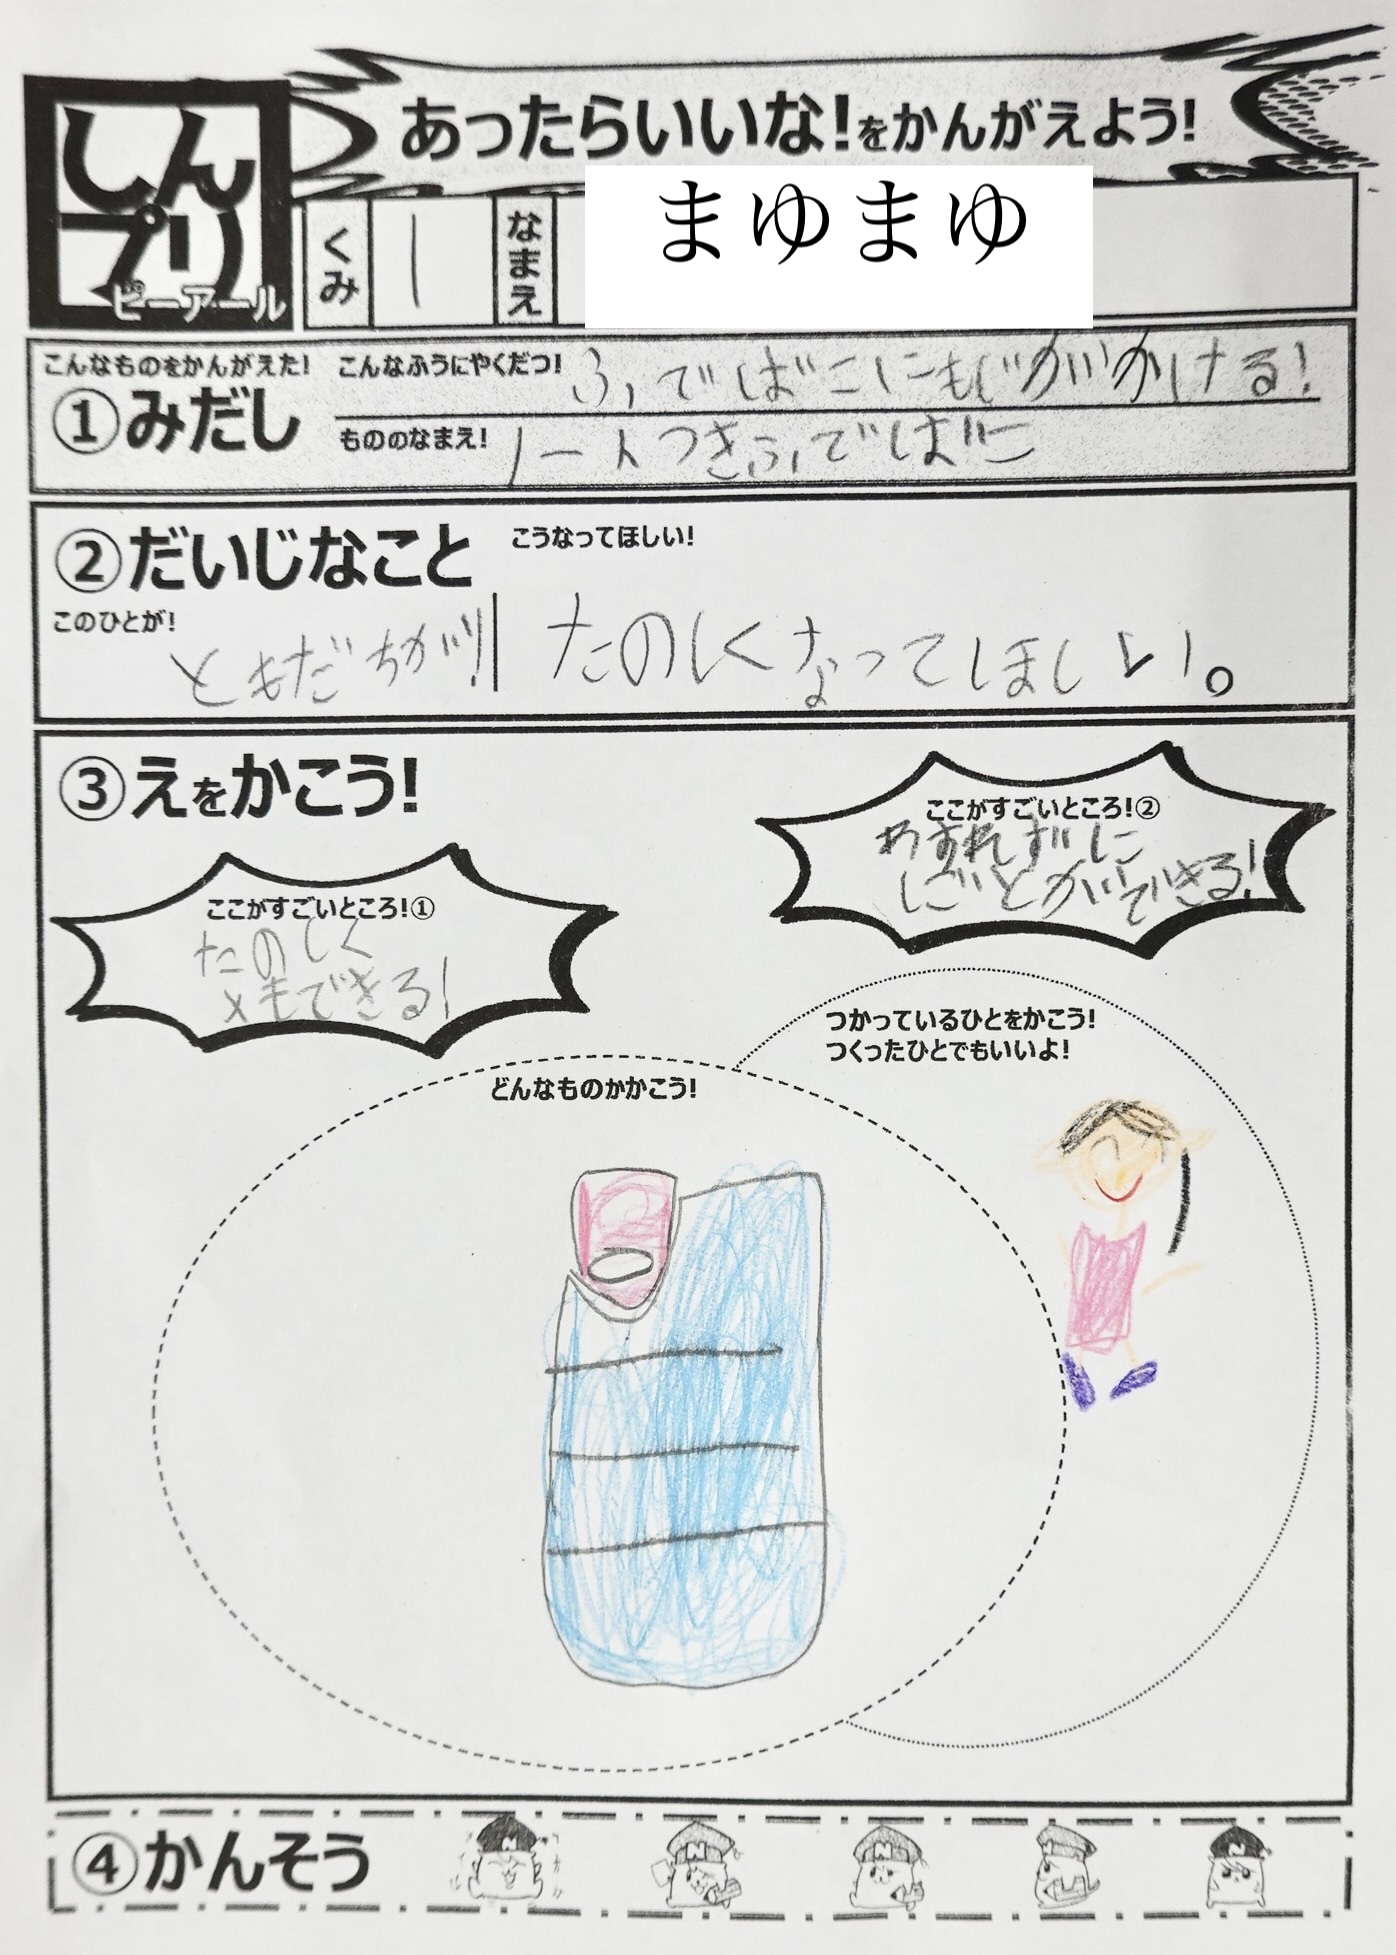 しんプリ
ピーアール
あったらいいな!をかんがえよう!
くみ 1 なまえ まゆまゆ
こんなものをかんがえた! こんなふうにやくだつ! ふでばこにもじがかける!
①みだし
もののなまえ! ノートつきふでばこ
②だいじなこと こうなってほしい!
このひとが!
ともだちが!! たのしくなってほしい。
③えをかこう!
ここがすごいところ!②
わすれずに
しごとができる!
ここがすごいところ!①
たのしく
メモできる!
つかっているひとをかこう!
つくったひとでもいいよ!
どんなものかかこう!
④かんそう
N
N
N
N
N